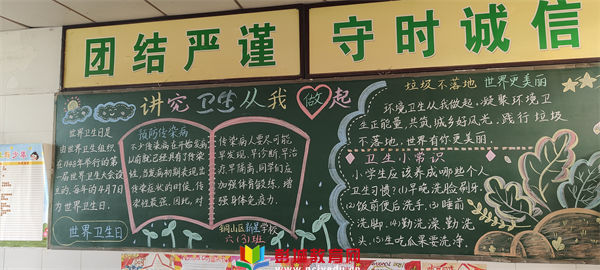 团结严谨
守时诚信
讲究卫生从我做起
世界卫生日是
由世界卫生组织
在1948年举行的第
一届世界卫生大会设
立的,每年的4月7日
为世界卫生日。
世界卫生日
预防传染病
不少传染病在开始发病
以前就已经具有了传染
性,当发病初期表现出
传染症状的时候,传
染性最强,因此,对
传染病人要尽可能
早发现、早诊断、早治
疗、早隔离,同学们应
加强体育锻炼,增
强身体免疫力。
铜山区新星学校
六(3)班
垃圾不落地 世界更美丽
环境卫生从我做起,凝聚环境卫
生正能量,共筑城乡好风光,践行垃圾
不落地,世界有你更美丽.
卫生小常识
小学生应该养成哪些个人
卫生习惯:(1)早晚洗脸刷牙.
(2)饭前便后洗手.(3)睡前
洗脚.(4)勤洗澡勤洗
头.(5)生吃瓜果要洗净.
教育网